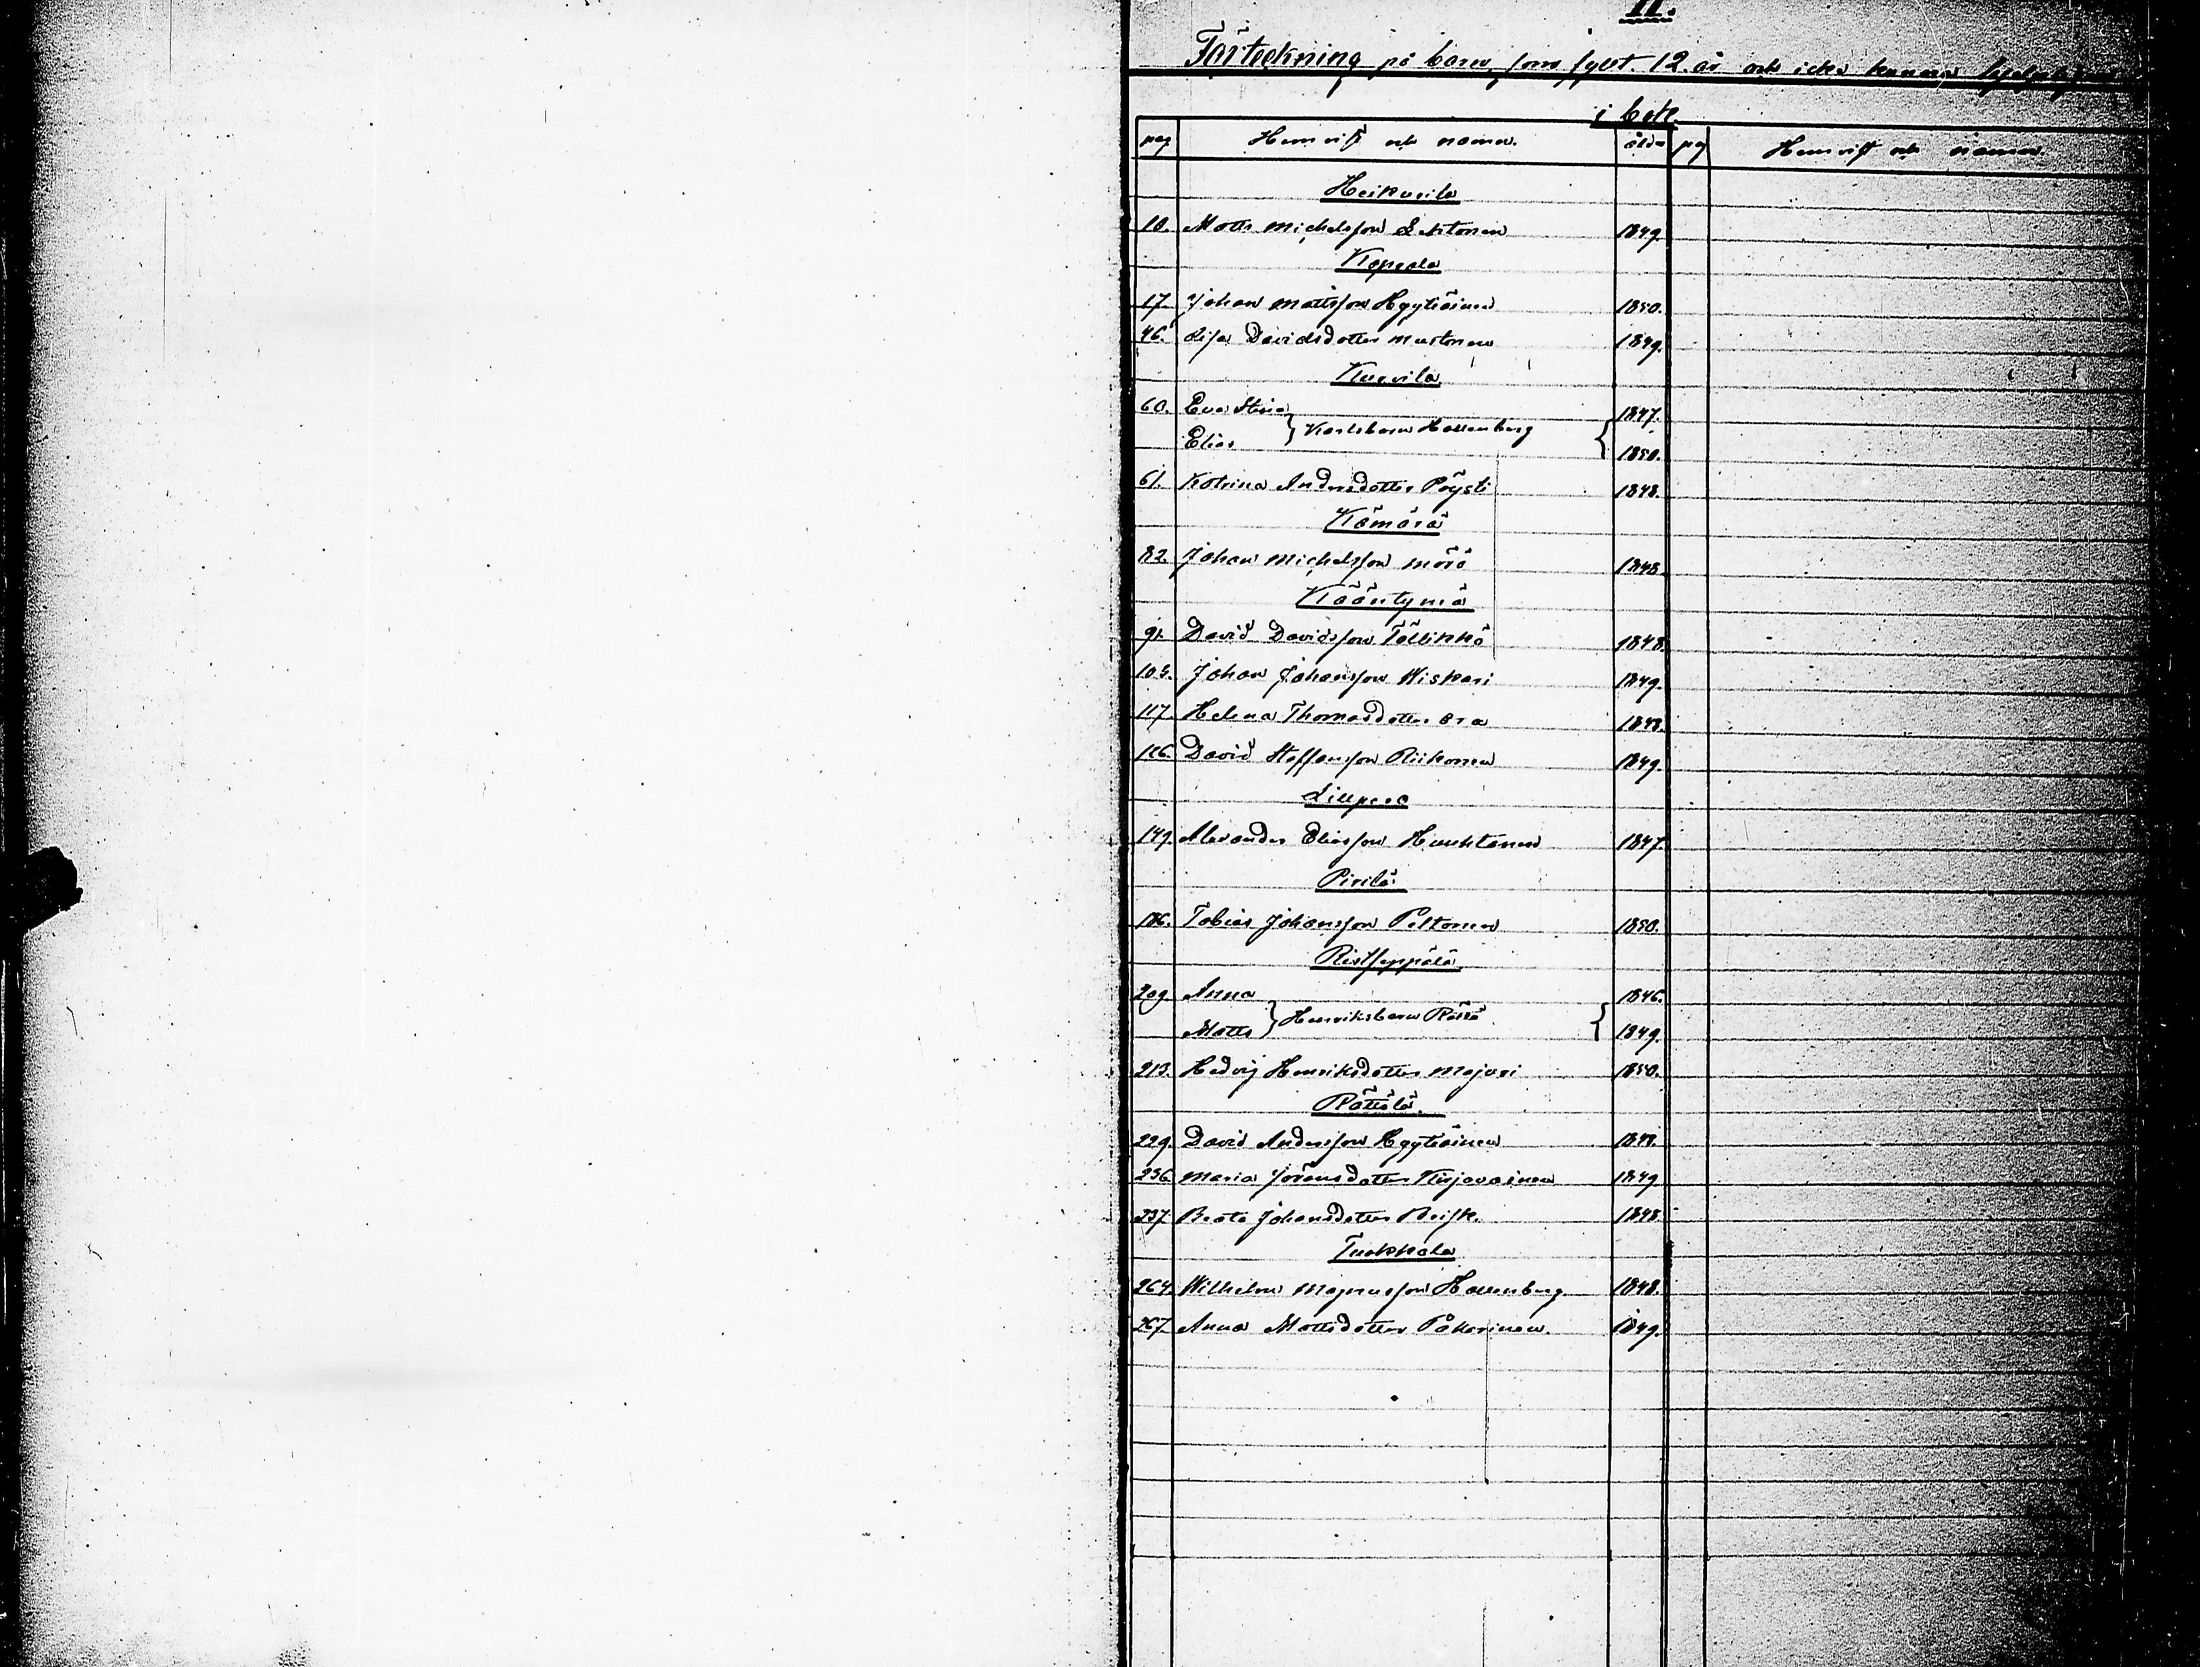 II.
Förteckning på barn, som fyllt. 12. år och icke kunna
i bok.
pag Hemvist och namn. ålder pag Hemvist och namn.
Heikurila
10. Matts Michelsson Lehtonen 1849.
Kopsala
17. Johan Mattsson Hyytiäinen 1850.
46. Lisa Davidsdotter Mustonen 1849.
Kurvila
60. Eva Stina 1847.
Karlsbarn Hallenberg
Elias 1850.
61. Katrina Andersdotter Pöysti 1848.
Kämärä
82. Johan Michelsson Mörö 1848.
Kääntymä
91. David Davidsson Tällikkö 1848.
103. Johan Johansson Wiskari 1849.
117. Helena Thomasdotter Ora 1848.
126. David Staffansson Riikonen 1849.
Lillpero
149. Alexander Eliasson Huuhtanen 1847.
Pirilä
186. Tobias Johansson Peltonen 1850.
Ristseppälä
209. Anna 1846.
Henriksbarn Rässä
Matts 1849.
213. Hedvig Henriksdotter Majuri 1850.
Rättälä.
229. David Andersson Hyytiäinen 1848.
236. Maria Jöransdotter Kirjavainen 1849.
237. Beata Johansdotter Reisk. 1848.
Tuokkola
264. Wilhelm Magnusson Hallenberg 1848.
267. Anna Mattsdotter Pakarinen. 1849.